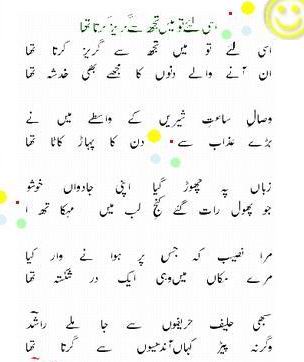 اسی لئے تو میں تجھ سے گریز کرتا تھا
اسی لئے تو میں تجھ سے گریز کرتا تھا
ان آنے والے دنوں کا مجھے بھی خدشہ تھا
وصالِ ساعتِ شیریں کے واسطے میں نے
بڑے عذاب سے دن کا پہاڑ کاٹا تھا
زباں پہ چھوڑ گیا اپنی جاوداں خوشبو
جو پھول رات گئے کنجِ لب میں مہکا تھا
مرا نصیب کہ جس پر ہوا نے وار کیا
مرے مکاں میں وہی ایک در شکستہ تھا
سبھی حلیف حریفوں سے جا ملے راشد
وگرنہ پیڑ کہاں آندھیوں سے گرتا تھا